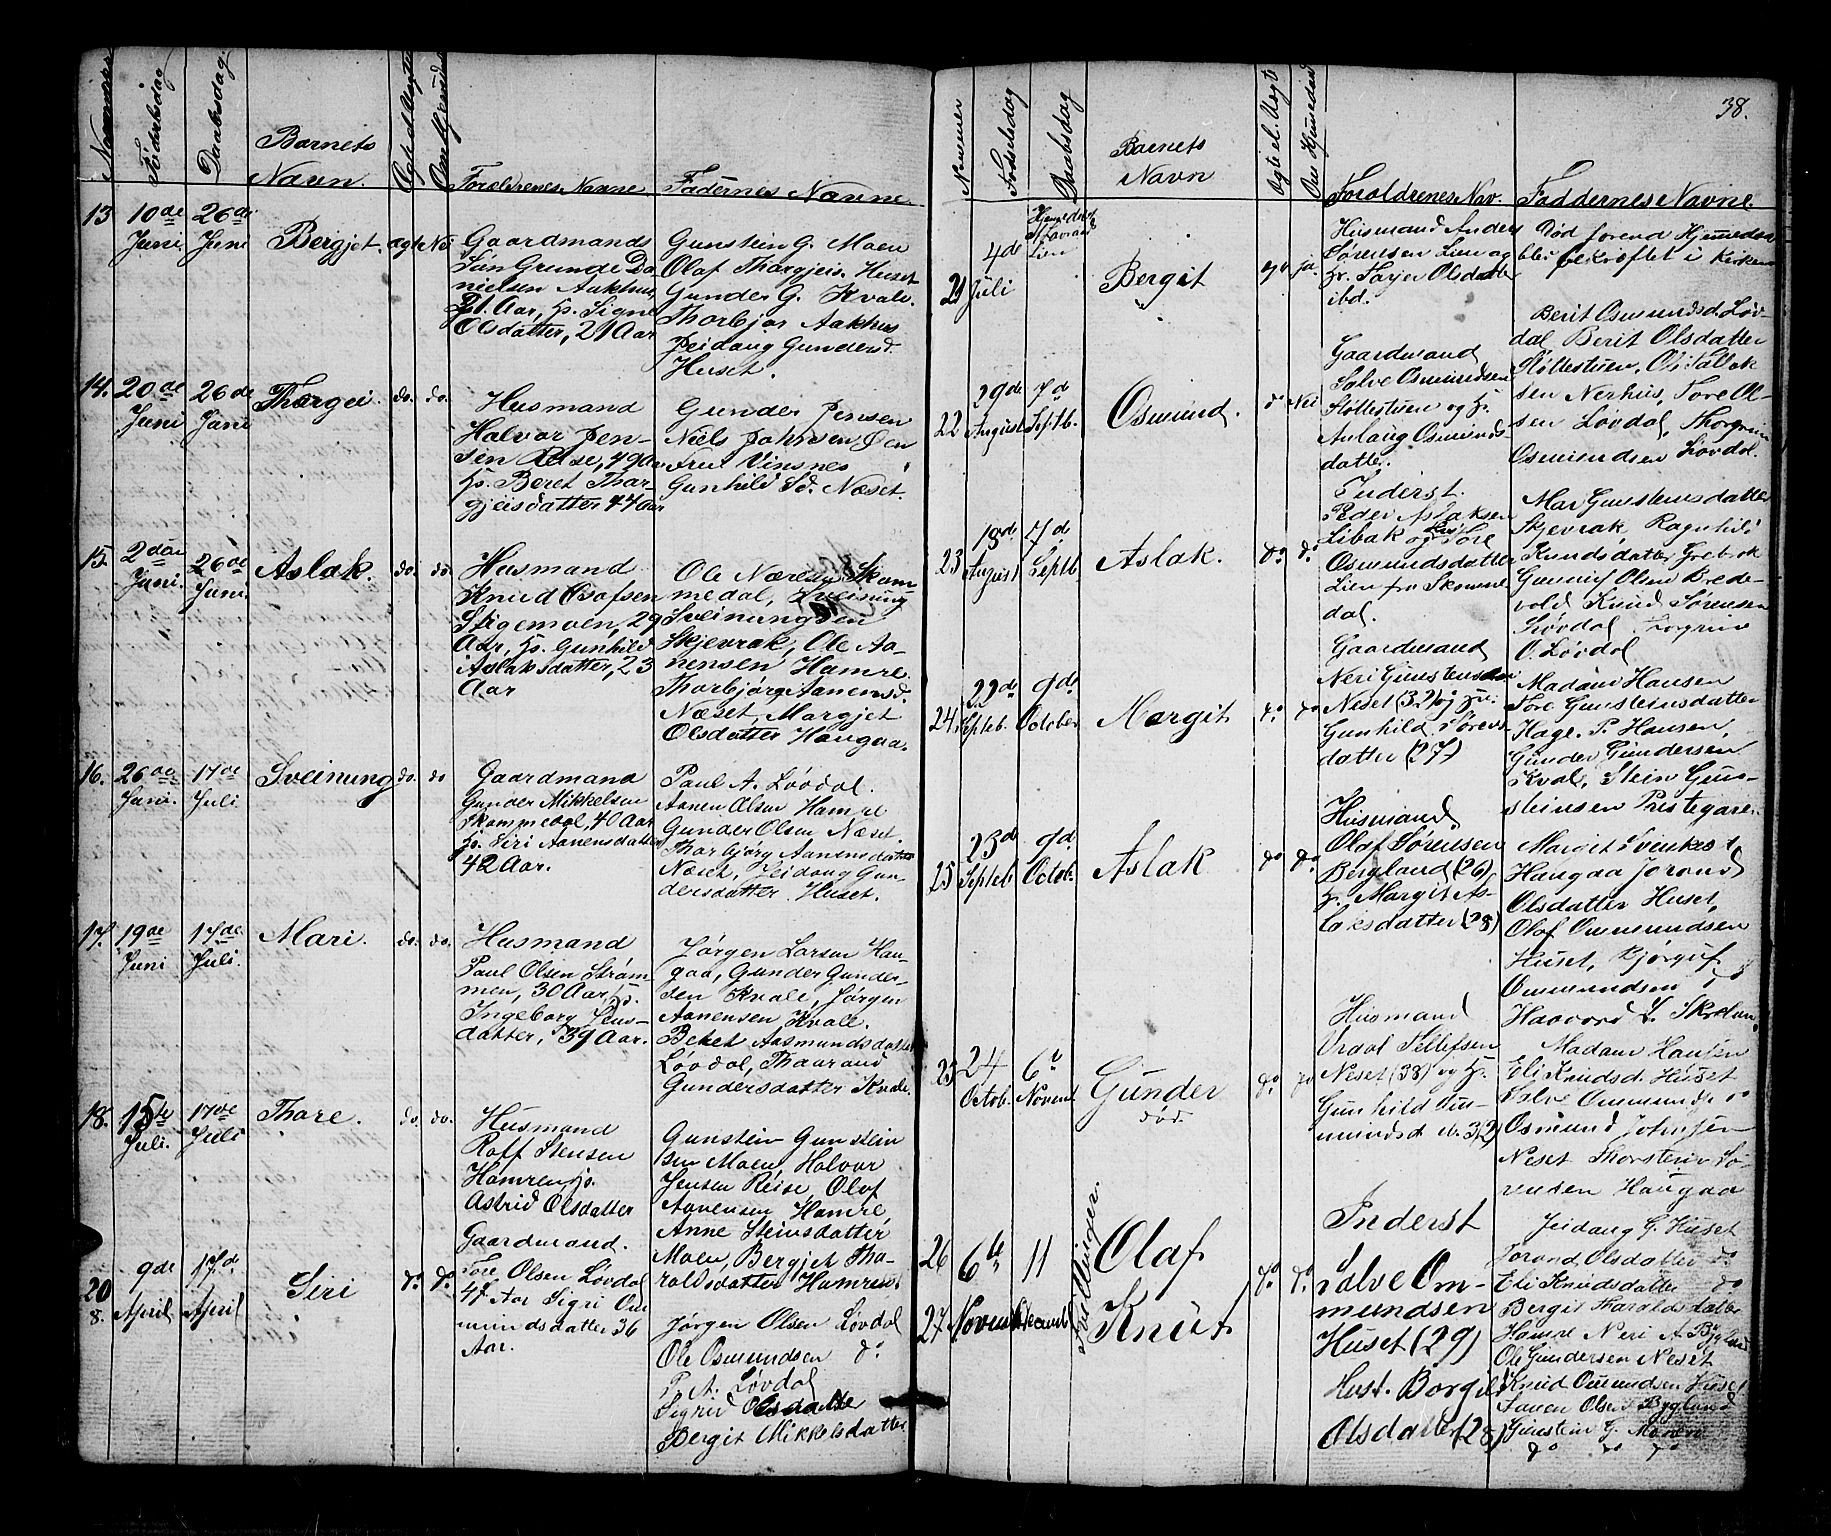 Nummer
Fødselsdag
Daabsdag.
Barnets
Navn.
Forældrenes Navne
Faddernes Navne
13
10de
Juni
26de
Juni
Bergjet.
ægte
Nei
Gaardmands
Søn Grunde Da
nielsen Aakhus,
21. Aar, H. Signe
Olsdatter, 21 Aar
Gunstein G. Moen
Olaf Thorgjeis. Huset
Gunder G. Kvale.
Thorbjør Aakhus
Jeidaug Gundersd.
Huset.
14.
20de
Juni
26de
Juni
Thorgei.
do.
do.
Husmand
Halvor Jen-
sen Reise, 49 Aar
H. Beret Thor-
gjeisdatter 44 Aar
Gunder Jensen
Niels Johnsen,
Fru Vinsnes
Gunhild Sd. Næset.
15.
2den
Juni.
26de
Juni
Aslak.
do.
do.
Husmand
Knud Olafsen
Stigemoen, 29
Aar, H. Gunhild
Aslaksdatter, 23
Aar
Ole Næresen Skom-
medal, Sveinung
Sveinungsen
Skjevrak, Ole Aa-
nensen Hamre
Thorbjørg Aanensd.
Næset, Margjet
Olsdatter Haugaa.
16.
26de
Juni.
17de
Juli
Sveinung
do.
do
Gaardmand
Gunder Mikkelsen
Skommedal, 40 Aar
H. Siri Aanensdatter
42 Aar.
Paul A. Løvdal.
Aanen Olsen Hamre
Gunder Olsen Næset.
Thorbjørg Aanensdatter
Næset, Jeidaug Gun-
dersdatter Huset.
17.
19de
Juni
17de
Juli.
Mari.
do.
do.
Husmand
Paul Olsen Strøm-
men, 30 Aar, H.
Ingeborg Jens-
datter, 39 Aar.
Jørgen Larsen Hau-
gaa, Gunder Gunder-
sen Kvale, Jørgen
Aanensen Kvale.
Beret Aasmundsdatter
Løvdal, Thaarand
Gundersdatter Kvale.
18.
15de
Juli.
17de
Juli
Thore.
do.
do.
Husmand
Rolf Stensen
Hamren H.
Astrid Olsdatter
Gunstein Gunstein
sen Moen, Halvor
Jensen Reise, Olof
Aanensen Hamre,
Anne Steinsdatter
Moen, Bergjet Tho-
raldsdatter Hamren.
20
8.
9de
April
17de
April
Siri
do
do
Gaardmand.
Tore Olsen Løvdal
47 Aar Sigri Om
mundsdatter 36
Aar.
Jørgen Olsen Løvdal
Ole Osmundsen do
P. A. Løvdal
Sigrid Olsdatter
Bergit Mikkelsdatter
38.
Nummer
Fødselsdag
Daabsdag
Barnets
Navn
Forældrenes Nav.
Faddernes Navne
21
4de
Juli
Lien
Bergit
ja
Husmand Anders
Sørensen Lien og
H. Torjer Olsdatter
ibd.
Død forend Hjemedaa
blev bekræftet i Kirken
22
29de
August
7de
Septb.
Osmund.
do
Nei
Gaardmand
Salve Osmundsen
Støllestuen og H.
Anlaug Osmunds-
datter.
Berit Osmundsd. Løv-
dal Berit Olsdatter
Støllestuen, Ole Tallak
sen Nerhus, Tore Ol-
sen Løvdal, Thorgrim
Osmundsen Løvdal.
23
18de
August
7de
Septb
Aslak.
do.
do.
Inderst.
Peder Aslaksen
Libak og Tore
Osmundsdatter
Lien fra Skomme
dal.
Mari Gunsteinsdatter
Skjevrak, Ragnhild
Knudsdatter Grebrok
Gunnuf Olsen Brede-
vold Knud Sørensen
Løvdal Torgrim
O. Løvdal
24.
22de
Septb.
9de
October
Margit
do
do
Gaardmand
Neri Gunstensen
Neset (32) og Hu.
Gunhild Sørens
datter (27)
Madam Hansen
Tore Gunsteinsdatter
Hage. P. Hansen,
Gunder Gundersen
Kval, Stein Gun-
steinsen Prestegare.
25
23de
Septeb
9de
Octob.
Aslak
do
do.
Husmand
Olaf Sørensen
Bergland (26)
H. Margit As-
laksdatter (28)
Margit
Haugaa Jorand
Olsdatter Huset,
Olaf Ommundsen
Huset, Bjørguf
Ommundsen do
Haavord
25
24
Octob.
6te
Novemb
Gunder
død.
do
Husmand
Tellefsen
Neset (38) og H.
Gunhild Om-
mundsd. (32)
Madam Hansen
Eli Knudsd. Huset
Salve Ommunds. do
Osmund Johnsen
Neset Thorstein Sø-
rensen Haugaa
26
6te
11
Olaf
27
Novemb
Decemb
Tvillinger.
Knut
do
do.
Inderst
Salve Om-
mundsen
Huset (29)
Hust. Borgil
Olsdatter (28)
Jeidaug G. Huset
Jorand Olsdatter do
Eli Knudsdatter do
Bergit Tharaldsdatter
Hamre Neri A. Bygland
Ole Gundersen Neset
Knud Ommundsen Huset
Olsen Bygland
Gunstein G. Moen
do do do